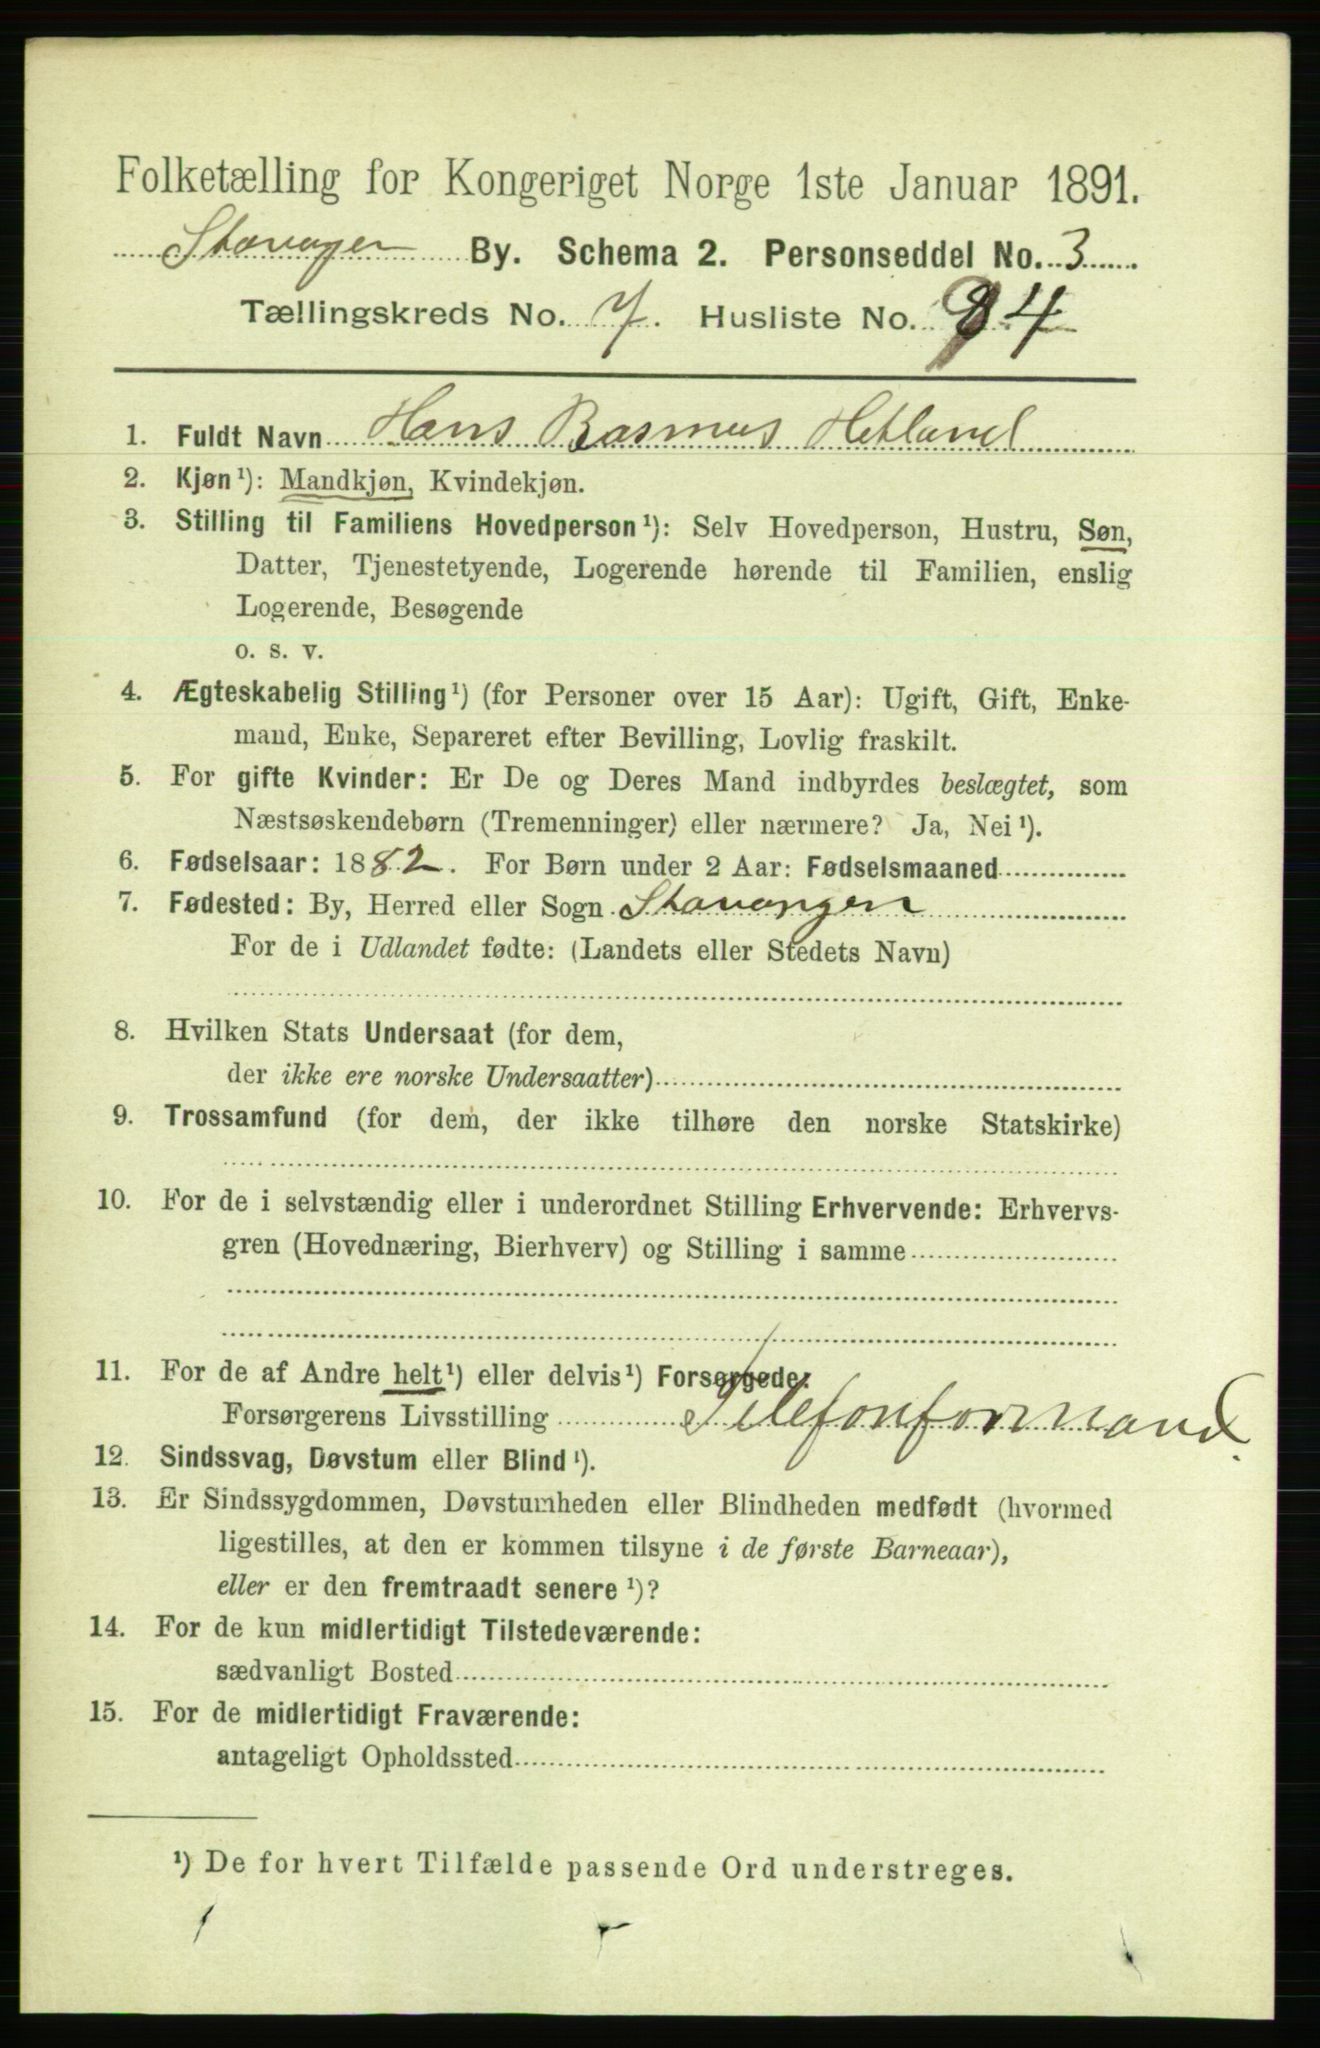 Folketælling for Kongeriget Norge 1ste Januar 1891.
Stavanger By. Schema 2. Personseddel No. 3
Tællingskreds No. 7. Husliste No. 84
1. Fuldt Navn Hans Rasmus Hetland
2. Kjøn¹): Mandkjøn, Kvindekjøn.
3. Stilling til Familiens Hovedperson¹): Selv Hovedperson, Hustru, Søn,
Datter, Tjenestetyende, Logerende hørende til Familien, enslig
Logerende, Besøgende
o. s. v.
4. Ægteskabelig Stilling¹) (for Personer over 15 Aar): Ugift, Gift, Enke-
mand, Enke, Separeret efter Bevilling, Lovlig fraskilt.
5. For gifte Kvinder: Er De og Deres Mand indbyrdes beslægtet, som
Næstsøskendebørn (Tremenninger) eller nærmere? Ja, Nei¹).
6. Fødselsaar: 1882. For Børn under 2 Aar: Fødselsmaaned
7. Fødested: By, Herred eller Sogn Stavanger
For de i Udlandet fødte: (Landets eller Stedets Navn)
8. Hvilken Stats Undersaat (for dem,
der ikke ere norske Undersaatter)
9. Trossamfund (for dem, der ikke tilhøre den norske Statskirke)
10. For de i selvstændig eller i underordnet Stilling Erhvervende: Erhvervs-
gren (Hovednæring, Bierhverv) og Stilling i samme
11. For de af Andre helt¹) eller delvis¹) Forsørgede:
Forsørgerens Livsstilling Telefonformand.
12. Sindssvag, Døvstum eller Blind¹).
13. Er Sindssygdommen, Døvstumheden eller Blindheden medfødt (hvormed
ligestilles, at den er kommen tilsyne i de første Barneaar),
eller er den fremtraadt senere¹)?
14. For de kun midlertidigt Tilstedeværende:
sædvanligt Bosted
15. For de midlertidigt Fraværende:
antageligt Opholdssted
¹) De for hvert Tilfælde passende Ord understreges.